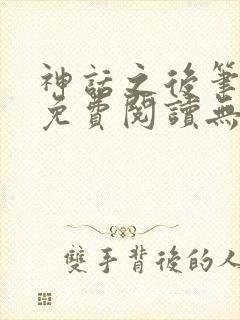 神話之後筆
免費閱讀無
雙手背後的人